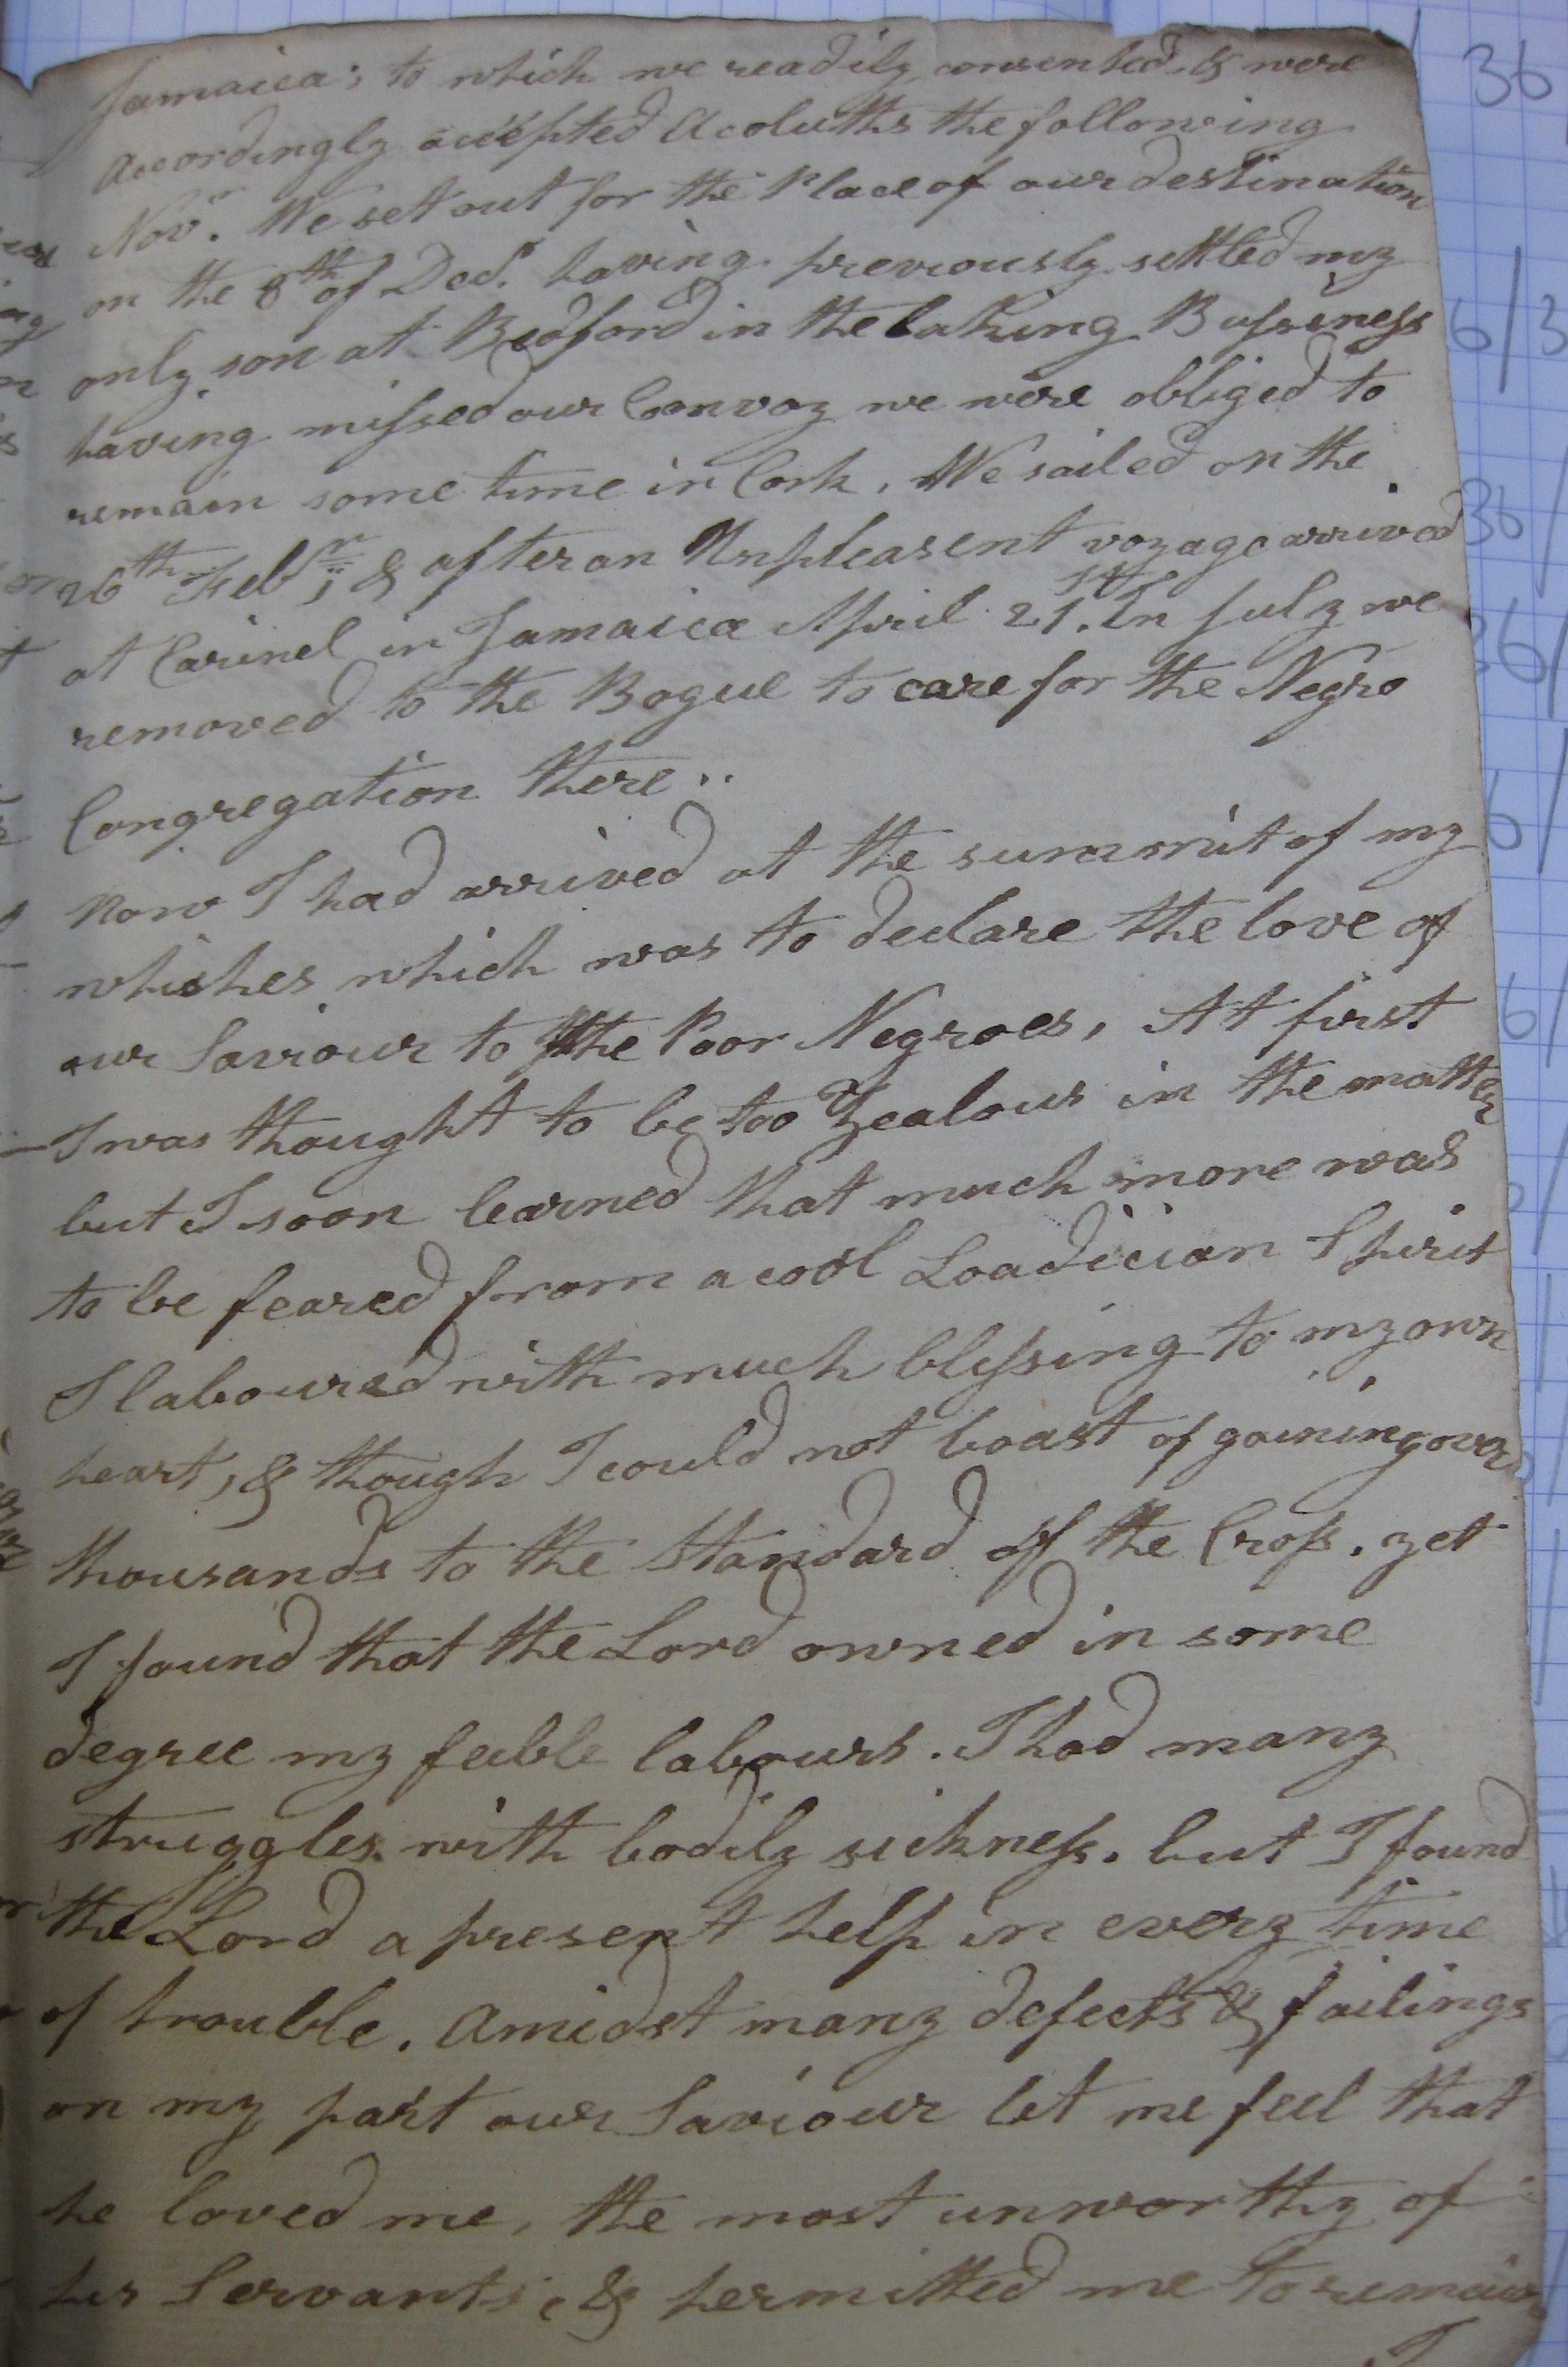 Jamaica; to which we readily consented, & were
accordingly accepted Acoluths the following
Novr. We set out for the Place of our destination
on the 8th of Decr. having previously settled my
only son at Bedford in the baking Bussiness
having missed our Convoy we were obliged to
remain some time in Cork, We sailed on the
26th Febr; & after an Unpleasent voyage arrived
at Carmel in Jamaica April 21st. In July we
removed to the Bogue to care for the Negro
Congregation there..
Now I had arrived at the summit of my
whishes which was to declare the love of
our Saviour to the Poor Negroes, At first
I was thought to be too Zealous in the matter
but I soon learned that much more was
to be feared from a cool Loadician Spirit
I laboured with much blessing to my own
heart, & though I could not boast of gaining over
thousands to the Standard of the Cross. yet
I found that the Lord owned in some
degree my feeble labours. I had many
struggles with bodily sickness. but I found
the Lord a present help in every time
of trouble. Amidst many defects & failings
on my part our Saviour let me feel that
he loved me, the most unworthy of
his Servants, & permitted me to remain
I
36
6/3
36
36/
6/
6/